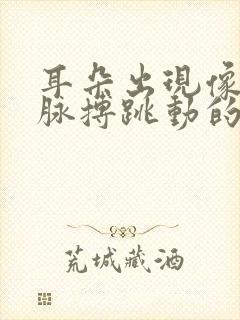 耳朵出現像
脈搏跳動的
荒城藏酒